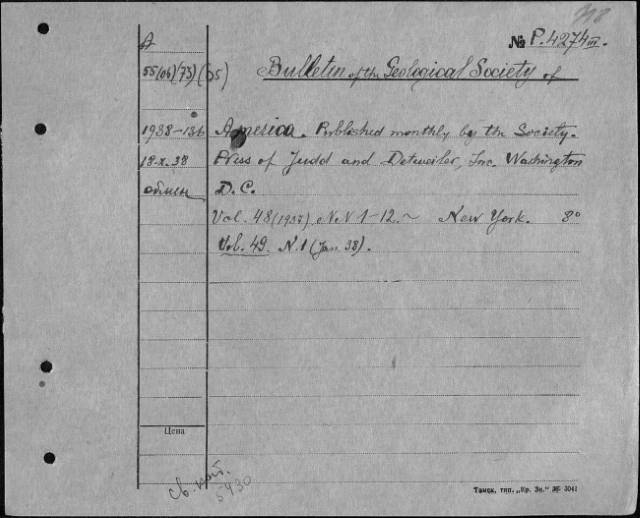 № P.4274 III.
A
55(06)(73)(05) Bulletin of the Geological Society of
1938-136 America. Published monthly by the Society.
18.X.38 Press of Judd and Detweiler, Inc. Washington
обмен D.C.
Vol. 48 (1937) NN 1-12. ~ New York. 8°
Vol. 49. N.1 (Jan. 38).
Цена
св. кат.
5430
Томск, тип. „Кр. Зн." № 3041